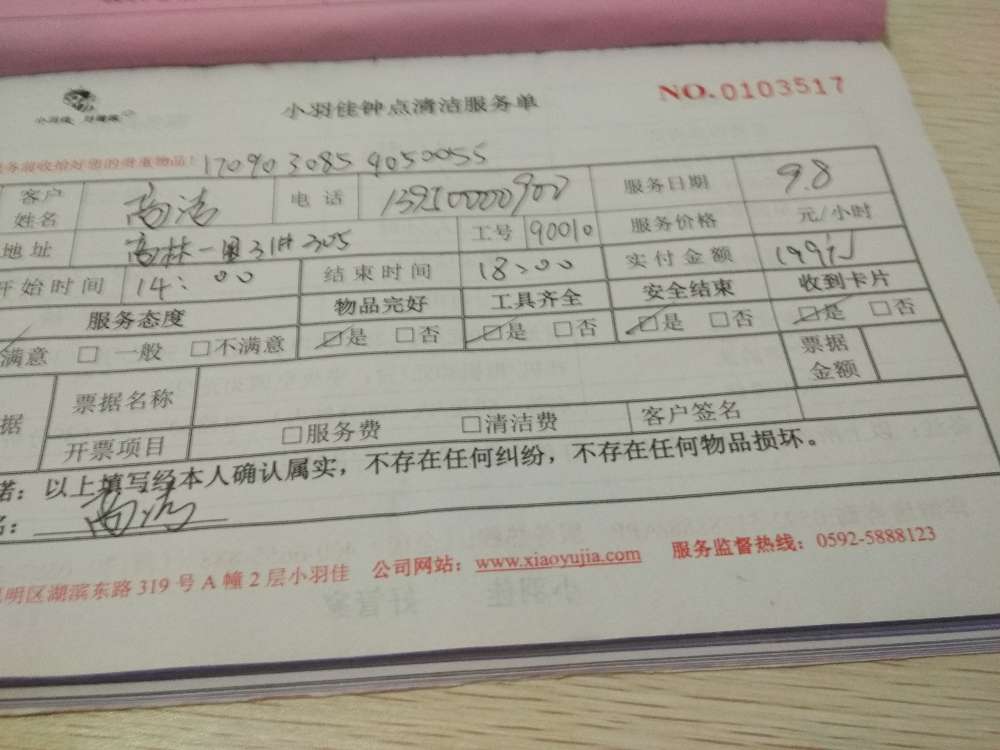 小羽佳钟点清洁服务单
NO.0103517
小羽佳 好管家
务前收拾好您的贵重物品! 170903085 9050055
客户姓名 高洁 电话 服务日期 9.8
地址 高林一里31# 305 工号 90010 服务价格 元/小时
开始时间 14:00 结束时间 18:00 实付金额
服务态度 物品完好 工具齐全 安全结束 收到卡片
满意 □ 一般 □不满意 □是 □否 □是 □否 □是 □否 □是 □否
据 票据名称 票据金额
开票项目 □服务费 □清洁费 客户签名
诺:以上填写经本人确认属实,不存在任何纠纷,不存在任何物品损坏。
名: 高洁
明区湖滨东路 319 号 A 幢 2 层小羽佳 公司网站:www.xiaoyujia.com 服务监督热线:0592-5888123